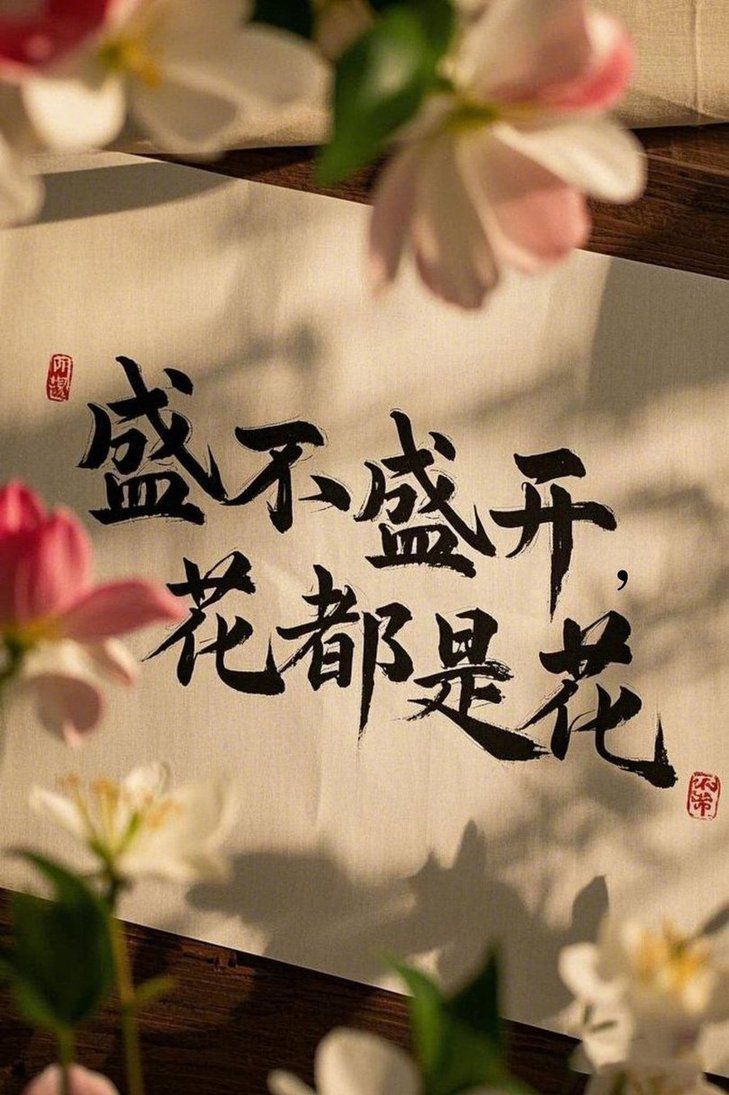 盛不盛开,
花都是花